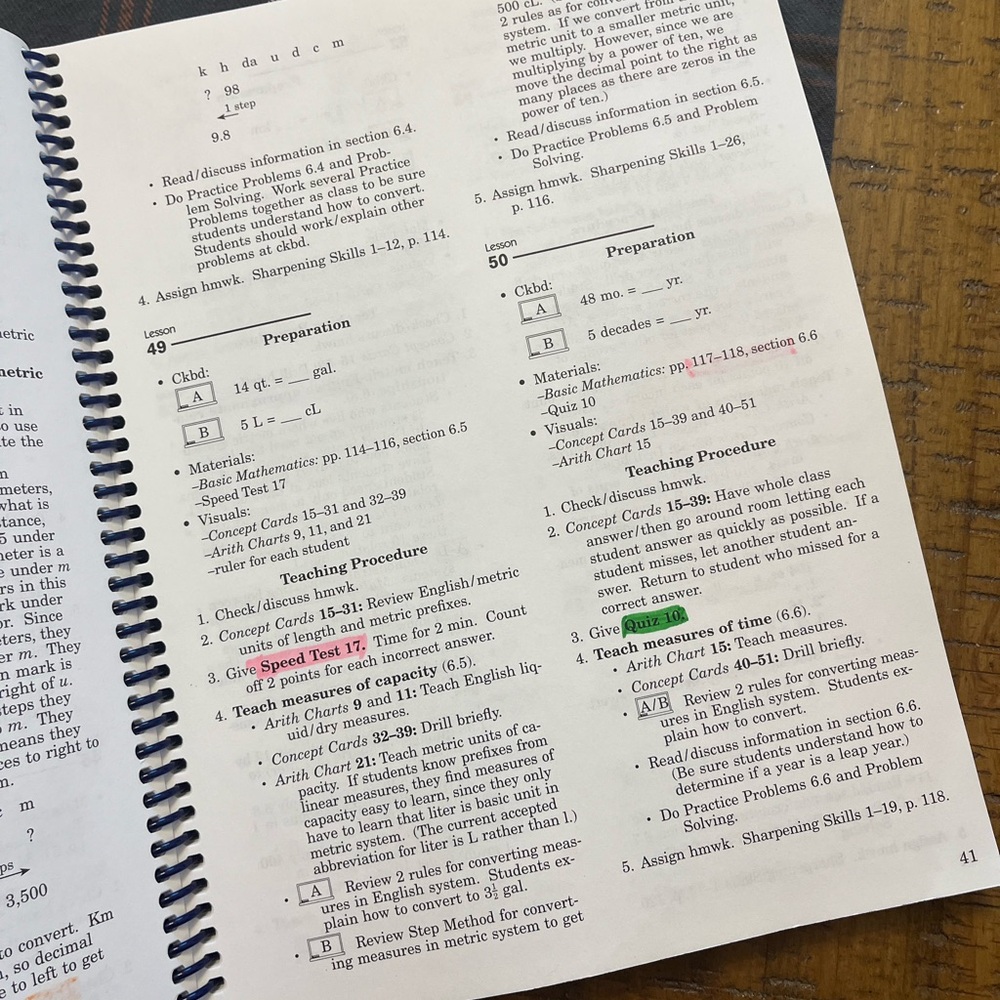 etric
netric
t in
o use
te the
n
meters,
what is
stance,
5 under
neter is a
e under m
rs in this
rk under
or. Since
eters, they
er m. They
n mark is
right of u.
steps they
o m. They
means they
ces to right to
m.
c m
?
ps
3,500
to convert. Km
n, so decimal
e to left to get
k h da u d c m
? 98
1 step
9.8
• Read/discuss information in section 6.4.
• Do Practice Problems 6.4 and Prob-
lem Solving. Work several Practice
Problems together as class to be sure
students understand how to convert.
Students should work/explain other
problems at ckbd.
4. Assign hmwk. Sharpening Skills 1–12, p. 114.
Lesson
49
Preparation
• Ckbd:
A 14 qt. = __ gal.
B 5 L = __ cL
• Materials:
–Basic Mathematics: pp. 114–116, section 6.5
–Speed Test 17
• Visuals:
–Concept Cards 15–31 and 32–39
–Arith Charts 9, 11, and 21
–ruler for each student
Teaching Procedure
1. Check/discuss hmwk.
2. Concept Cards 15–31: Review English/metric
units of length and metric prefixes.
3. Give Speed Test 17. Time for 2 min. Count
off 2 points for each incorrect answer.
4. Teach measures of capacity (6.5).
• Arith Charts 9 and 11: Teach English liq-
uid/dry measures.
• Concept Cards 32–39: Drill briefly.
• Arith Chart 21: Teach metric units of ca-
pacity. If students know prefixes from
linear measures, they find measures of
capacity easy to learn, since they only
have to learn that liter is basic unit in
metric system. (The current accepted
abbreviation for liter is L rather than l.)
• A Review 2 rules for converting meas-
ures in English system. Students ex-
plain how to convert to 3½ gal.
• B Review Step Method for convert-
ing measures in metric system to get
500 cL.
2 rules as for
system. If we convert from
metric unit to a smaller metric unit,
we multiply. However, since we are
multiplying by a power of ten, we
move the decimal point to the right as
many places as there are zeros in the
power of ten.)
• Read/discuss information in section 6.5.
• Do Practice Problems 6.5 and Problem
Solving.
5. Assign hmwk. Sharpening Skills 1–26,
p. 116.
Lesson
50
Preparation
• Ckbd:
A 48 mo. = __ yr.
B 5 decades = __ yr.
• Materials:
–Basic Mathematics: pp. 117–118, section 6.6
–Quiz 10
• Visuals:
–Concept Cards 15–39 and 40–51
–Arith Chart 15
Teaching Procedure
1. Check/discuss hmwk.
2. Concept Cards 15–39: Have whole class
answer/then go around room letting each
student answer as quickly as possible. If a
student misses, let another student an-
swer. Return to student who missed for a
correct answer.
3. Give Quiz 10.
4. Teach measures of time (6.6).
• Arith Chart 15: Teach measures.
• Concept Cards 40–51: Drill briefly.
• A/B Review 2 rules for converting meas-
ures in English system. Students ex-
plain how to convert.
• Read/discuss information in section 6.6.
(Be sure students understand how to
determine if a year is a leap year.)
• Do Practice Problems 6.6 and Problem
Solving.
5. Assign hmwk. Sharpening Skills 1–19, p. 118.
41